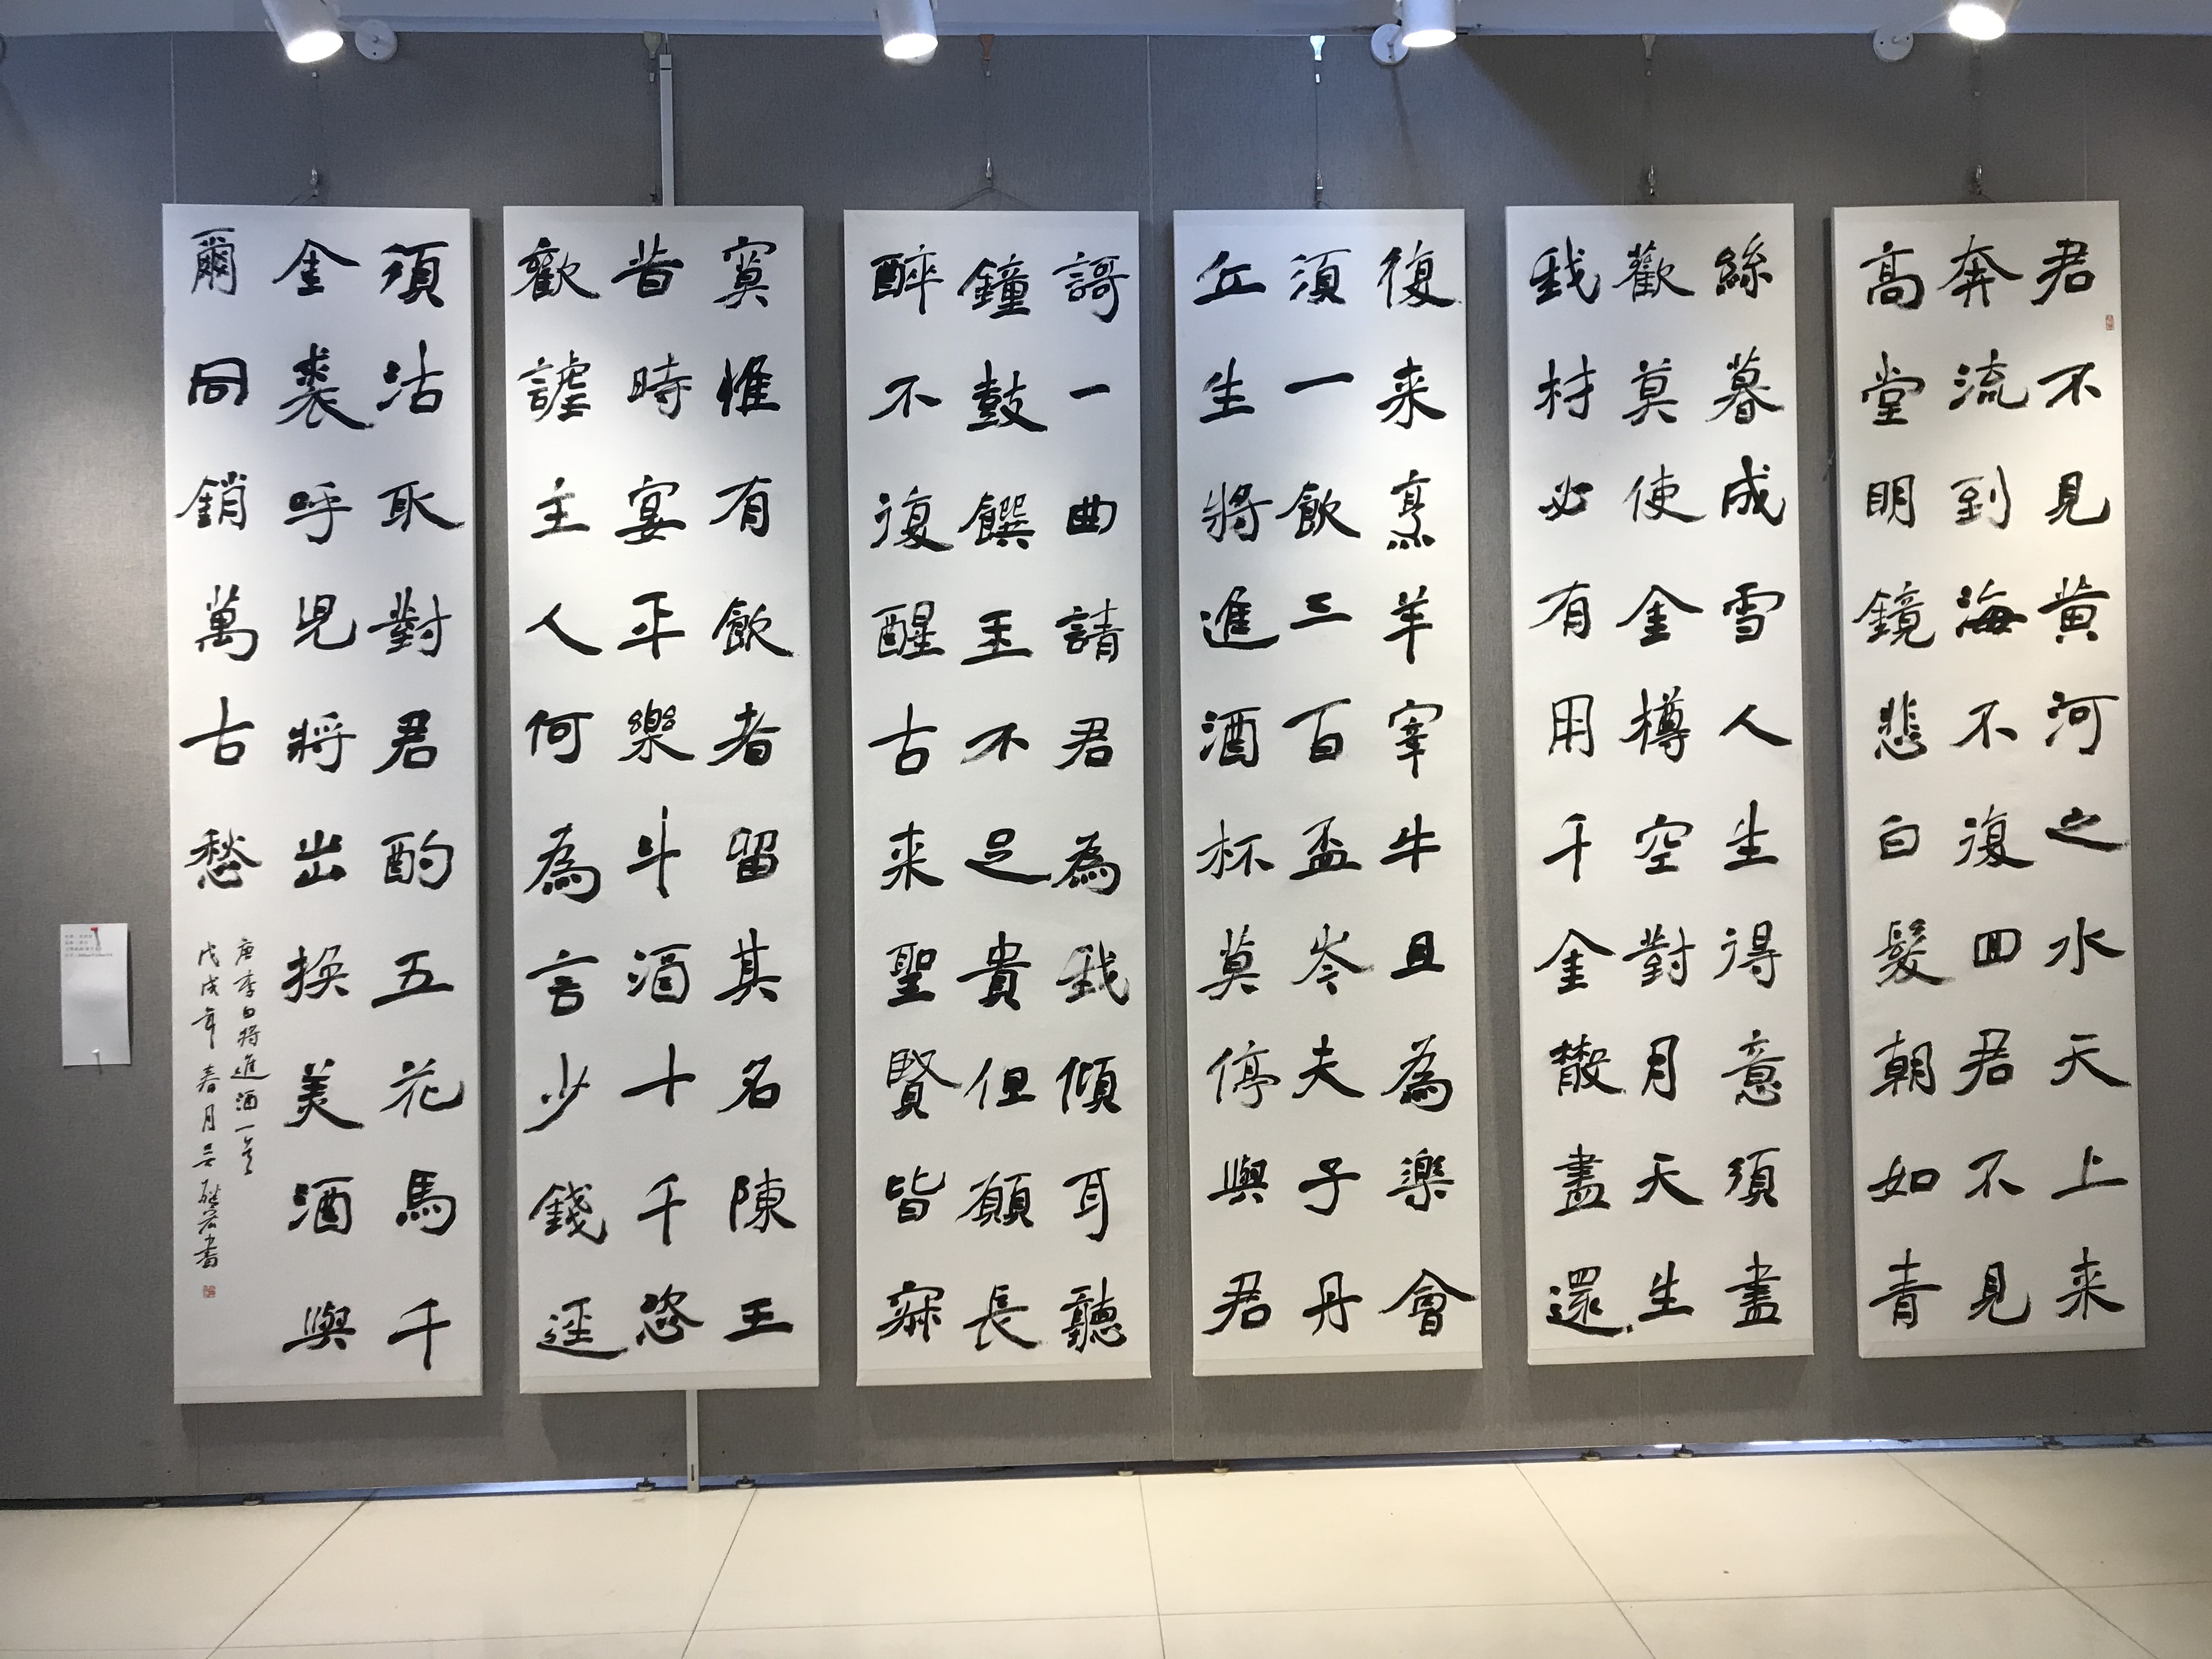 君不見黃河之水天上来
奔流到海不復回君不見
高堂明鏡悲白髮朝如青
絲暮成雪人生得意須盡
歡莫使金樽空對月天生
我材必有用千金散盡還
復来烹羊宰牛且為樂會
須一飲三百盃岑夫子丹
丘生將進酒杯莫停與君
謌一曲請君為我傾耳聽
鐘鼓饌玉不足貴但願長
醉不復醒古来聖賢皆寂
寞惟有飲者留其名陳王
昔時宴平樂斗酒十千恣
歡謔主人何為言少錢逕
須沽取對君酌五花馬千
金裘呼児將出換美酒與
爾同銷萬古愁
唐李白將進酒一首
戊戌年春月